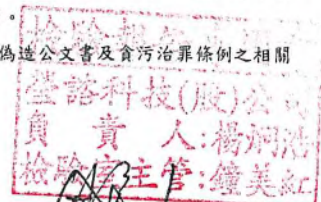 。
偽造公文書及貪污治罪條例之相關
檢驗報告專用章
瑩諮科技(股)公司
負責人:楊炯浩
檢驗室主管:鐘美紅